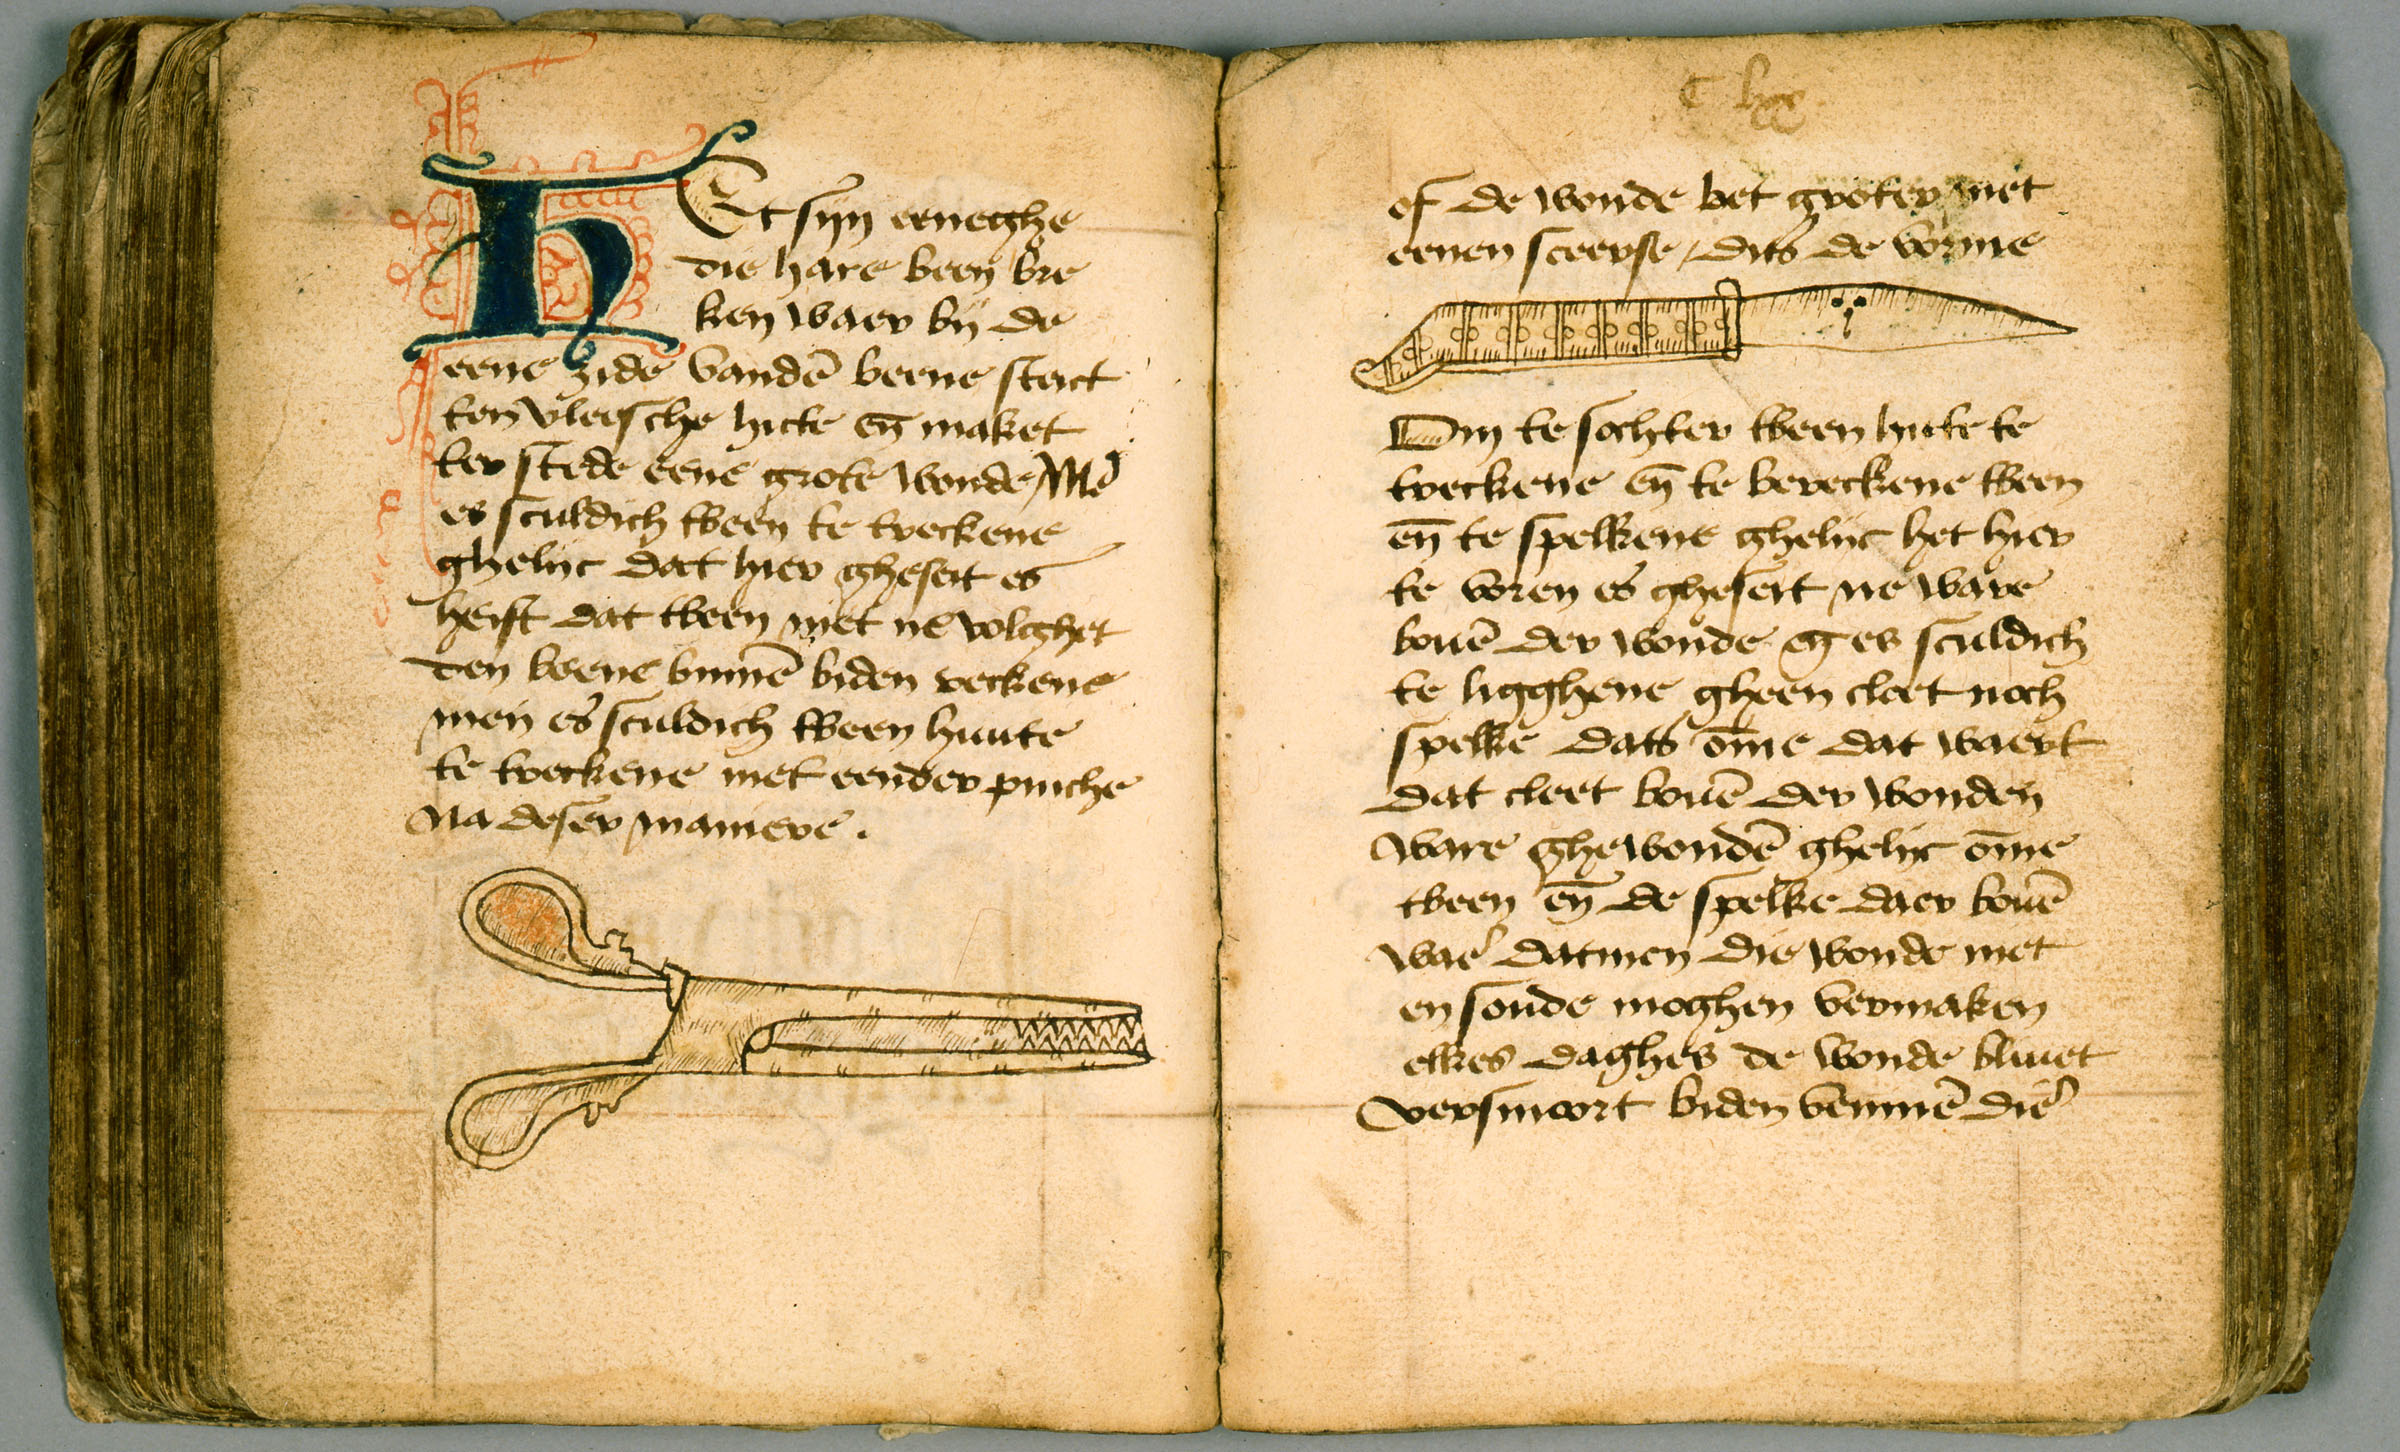 HEt sijn eeneghe
die hare been bre
ken waer bij de
eene zide vandē beene stect
ten vleesche hute eñ maket
ter stede eene grote wonde Mē
es sculdich tbeen te treckene
ghelijc dat hier gheseit es
heist dat tbeen niet ne volghet
den beene binnē biden reckene
men es sculdich tbeen huute
te treckene met eender pinche
Na deser maniere.
of de wonde bet groter met
eenen sceerse / dits de vorme
Om te sochter tbeen hute te
treckene eñ te bereckene tbeen
eñ te spelkene ghelijc het hier
te voren es gheseit ne ware
bouē der wonde eñ es sculdich
te ligghene gheen cleet noch
spelke dats ōme dat waert
dat cleet bouē der wonden
ware ghewondē ghelijc ōme
tbeen eñ de spelke daer bouē
waer datmen die wonde niet
en soude moghen vermaken
elkes daghes de wonde bliuet
versmoort biden venine die